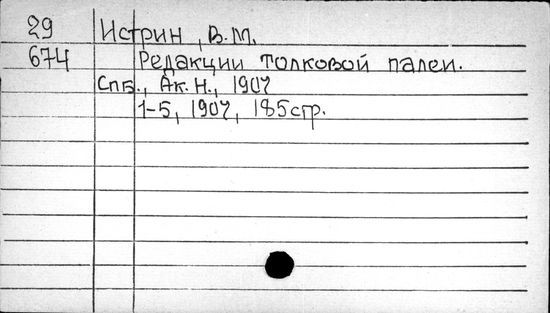 29 Истрин, В.М.
674 Редакции толковой палеи.
Спб., Ак. Н., 1907
1-5, 1907, 185 стр.